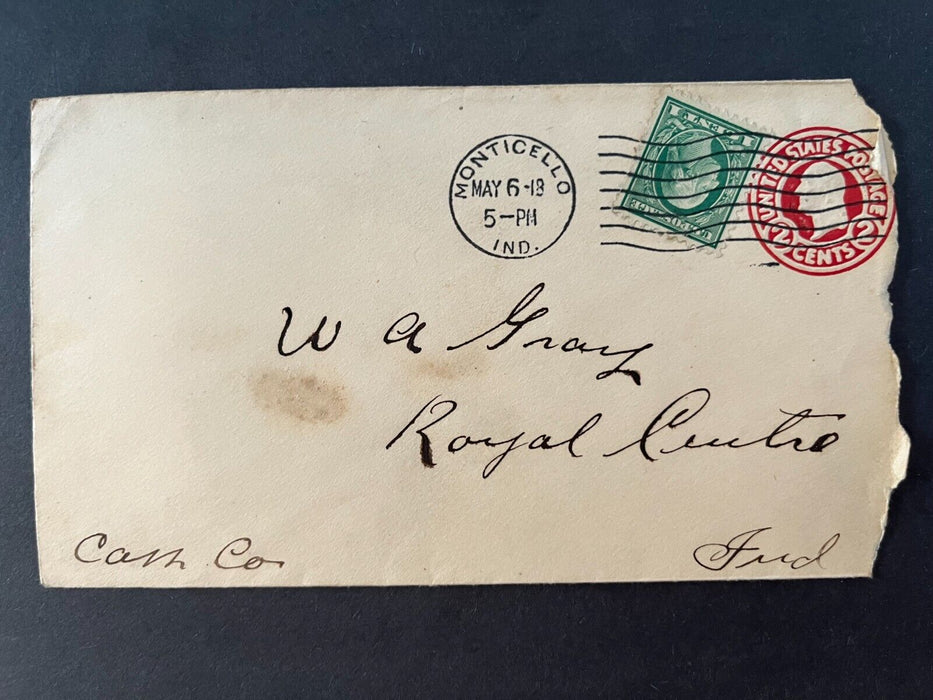 MONTICELLO
MAY 6-18
5-PM
IND.
1 CENT 1
U.S. POSTAGE
UNITED STATES POSTAGE
2 CENTS 2
W A Gray
Royal Centre
Cass Co
Ind